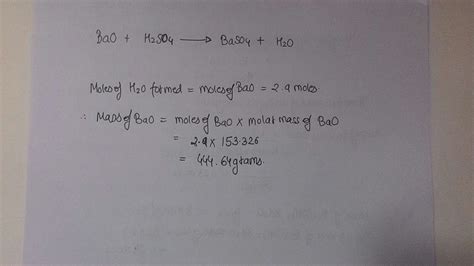 BaO + H₂SO₄ ⟶ BaSO₄ + H₂O
Moles of H₂O formed = moles of BaO = 2.9 moles.
∴ Mass of BaO = moles of BaO × molar mass of BaO
= 2.9 × 153.326
= 444.64 grams.